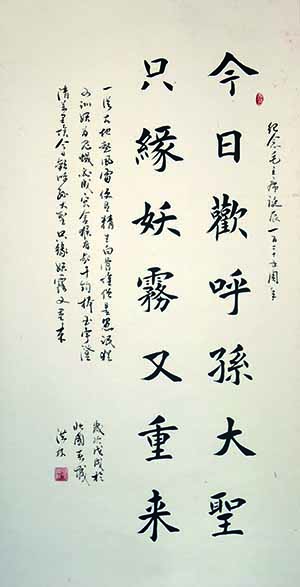 纪念毛主席诞辰一百二十五周年
今日歡呼孫大聖
只緣妖霧又重来
一從大地起風雷便有精生白骨堆僧是愚氓猶
可訓妖為鬼蜮必成災金猴奮起千鈞棒玉宇澄
清萬里埃今日歡呼孫大聖只緣妖霧又重来
歲次戊戌於
北國春城